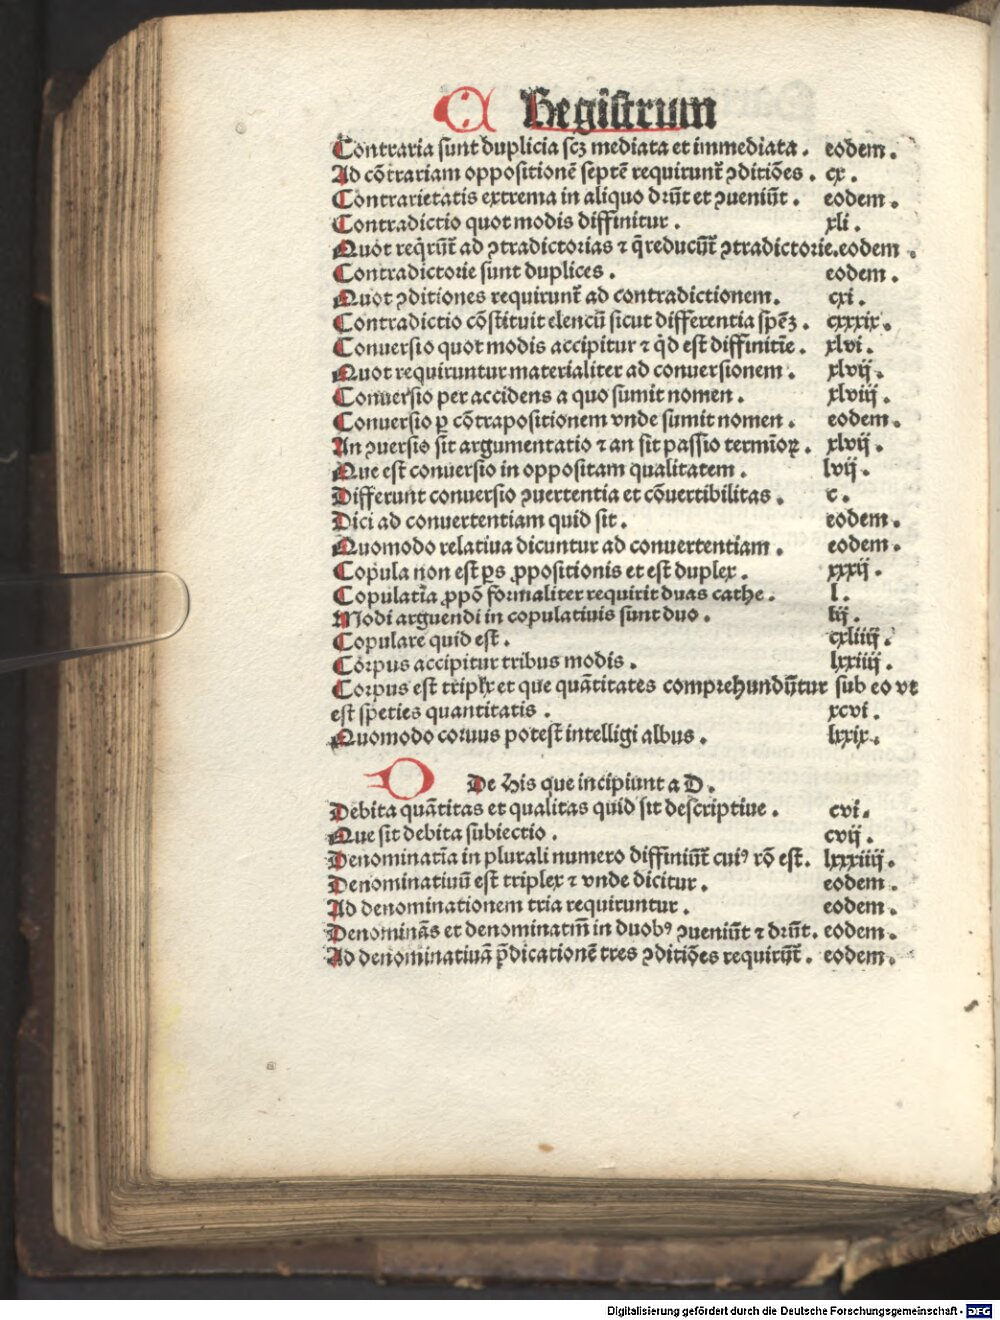 C Registrum
Contraria sunt duplicia scꝫ mediata et immediata . eodem .
Ad cōtrariam oppositionē septē requirunt᷑ ꝯditiōes . cx .
Contrarietatis extrema in aliquo dr̄ūt et ꝯueniūt . eodem .
Contradictio quot modis diffinitur . xli .
Quot reqͥrūt᷑ ad ꝯtradictorias ⁊ q̄ reducūt᷑ ꝯtradictorie . eodem .
Contradictorie sunt duplices . eodem .
Quot ꝯditiones requirunt᷑ ad contradictionem . cxi .
Contradictio cōstituit elencū sicut differentia spēꝫ . cxxxix .
Conuersio quot modis accipitur ⁊ qͥd est diffinitīe . xlvi .
Quot requiruntur materialiter ad conuersionem . xlvij .
Conuersio per accidens a quo sumit nomen . xlviij .
Conuersio ꝑ cōtrapositionem vnde sumit nomen . eodem .
An ꝯuersio sit argumentatio ⁊ an sit passio termīoꝝ . xlvij .
Que est conuersio in oppositam qualitatem . lvij .
Differunt conuersio ꝯuertentia et cōuertibilitas . c .
Dici ad conuertentiam quid sit . eodem .
Quomodo relatiua dicuntur ad conuertentiam . eodem .
Copula non est ꝑs ꝓpositionis et est duplex . xxxij .
Copulatīa ꝓpō formaliter requirit duas cathe . l .
Modi arguendi in copulatiuis sunt duo . lij .
Copulare quid est . cxliiij .
Corpus accipitur tribus modis . lxxiiij .
Corpus est triplex et que quātitates comprehundūtur sub eo vt
est speties quantitatis . xcvi .
Quomodo coruus potest intelligi albus . lxxix .
D De his que incipiunt a D .
Debita quātitas et qualitas quid sit descriptiue . cvi .
Que sit debita subiectio . cvij .
Denominatīa in plurali numero diffiniūt᷑ cuiꝰ rō est . lxxxiiij .
Denominatiuū est triplex ⁊ vnde dicitur . eodem .
Ad denominationem tria requiruntur . eodem .
Denominās et denominatm̄ in duobꝰ ꝯueniūt ⁊ dr̄ūt . eodem .
Ad denominatiuā p̄dicationē tres ꝯditiōes requirūt᷑ . eodem .
Digitalisierung gefördert durch die Deutsche Forschungsgemeinschaft - DFG